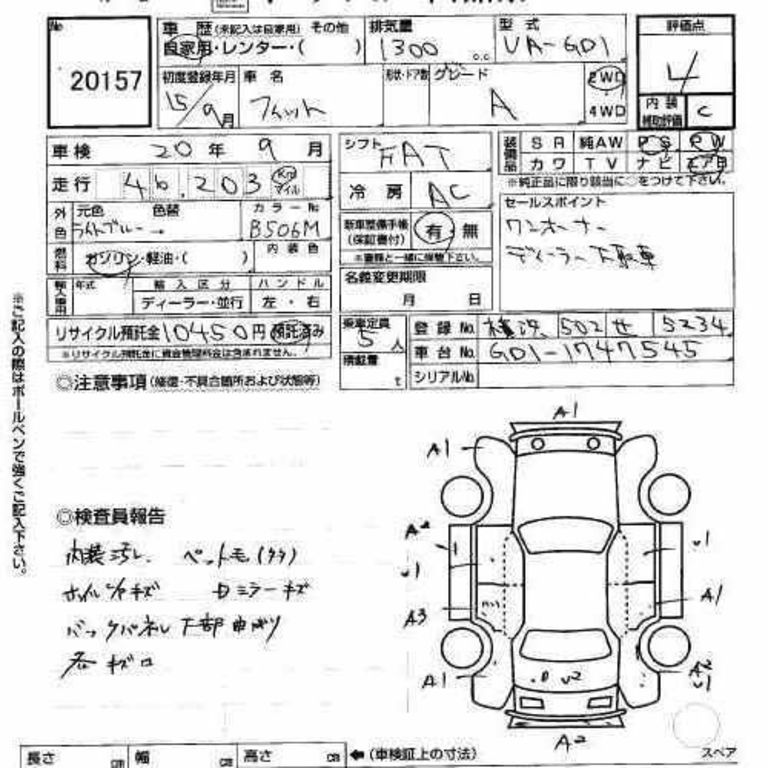 No
20157
車歴 (未記入は自家用) その他
自家用・レンター・( )
排気量
1300 c.c
型式
UA-GD1
評価点
4
初度登録年月
15/9月
車名
フィット
形状・ドア数
グレード
A
2WD
4WD
内装補助評価
C
車検 20年 9月
走行 46,203 Km マイル
外色
元色 色替
ライトブルー→
カラーNo
B506M
燃料
ガソリン・軽油・( )
内装色
輸入車用
年式
輸入区分
ディーラー・並行
ハンドル
左・右
リサイクル預託金 10450円 預託済み
※リサイクル預託金に資金管理料金は含まれません。
シフト
FAT
冷房
AC
新車整備手帳
(保証書付)
有・無
※書類と一緒に保管下さい。
名義変更期限
月 日
装備品
SR 純AW PS PW
カワ TV ナビ エアB
※純正品に限り該当に○をつけて下さい。
セールスポイント
ワンオーナー
ディーラー下取車
乗車定員
5人
積載量
t
登録No. 横浜 502 せ 5234
車台No. GD1-1747545
シリアルNo.
◎注意事項 (修復・不具合箇所および状態等)
※ご記入の際はボールペンで強くご記入下さい。
◎検査員報告
内装汚れ、ペット毛(タタ)
ホイルCアキズ Dミラーキズ
バックパネル下部曲がり
各キズロ
A1
A1
A2
U1
A3
A1
U1
A1
A2
U1
U2
A2
スペア
長さ cm 幅 cm 高さ cm ←(車検証上の寸法)